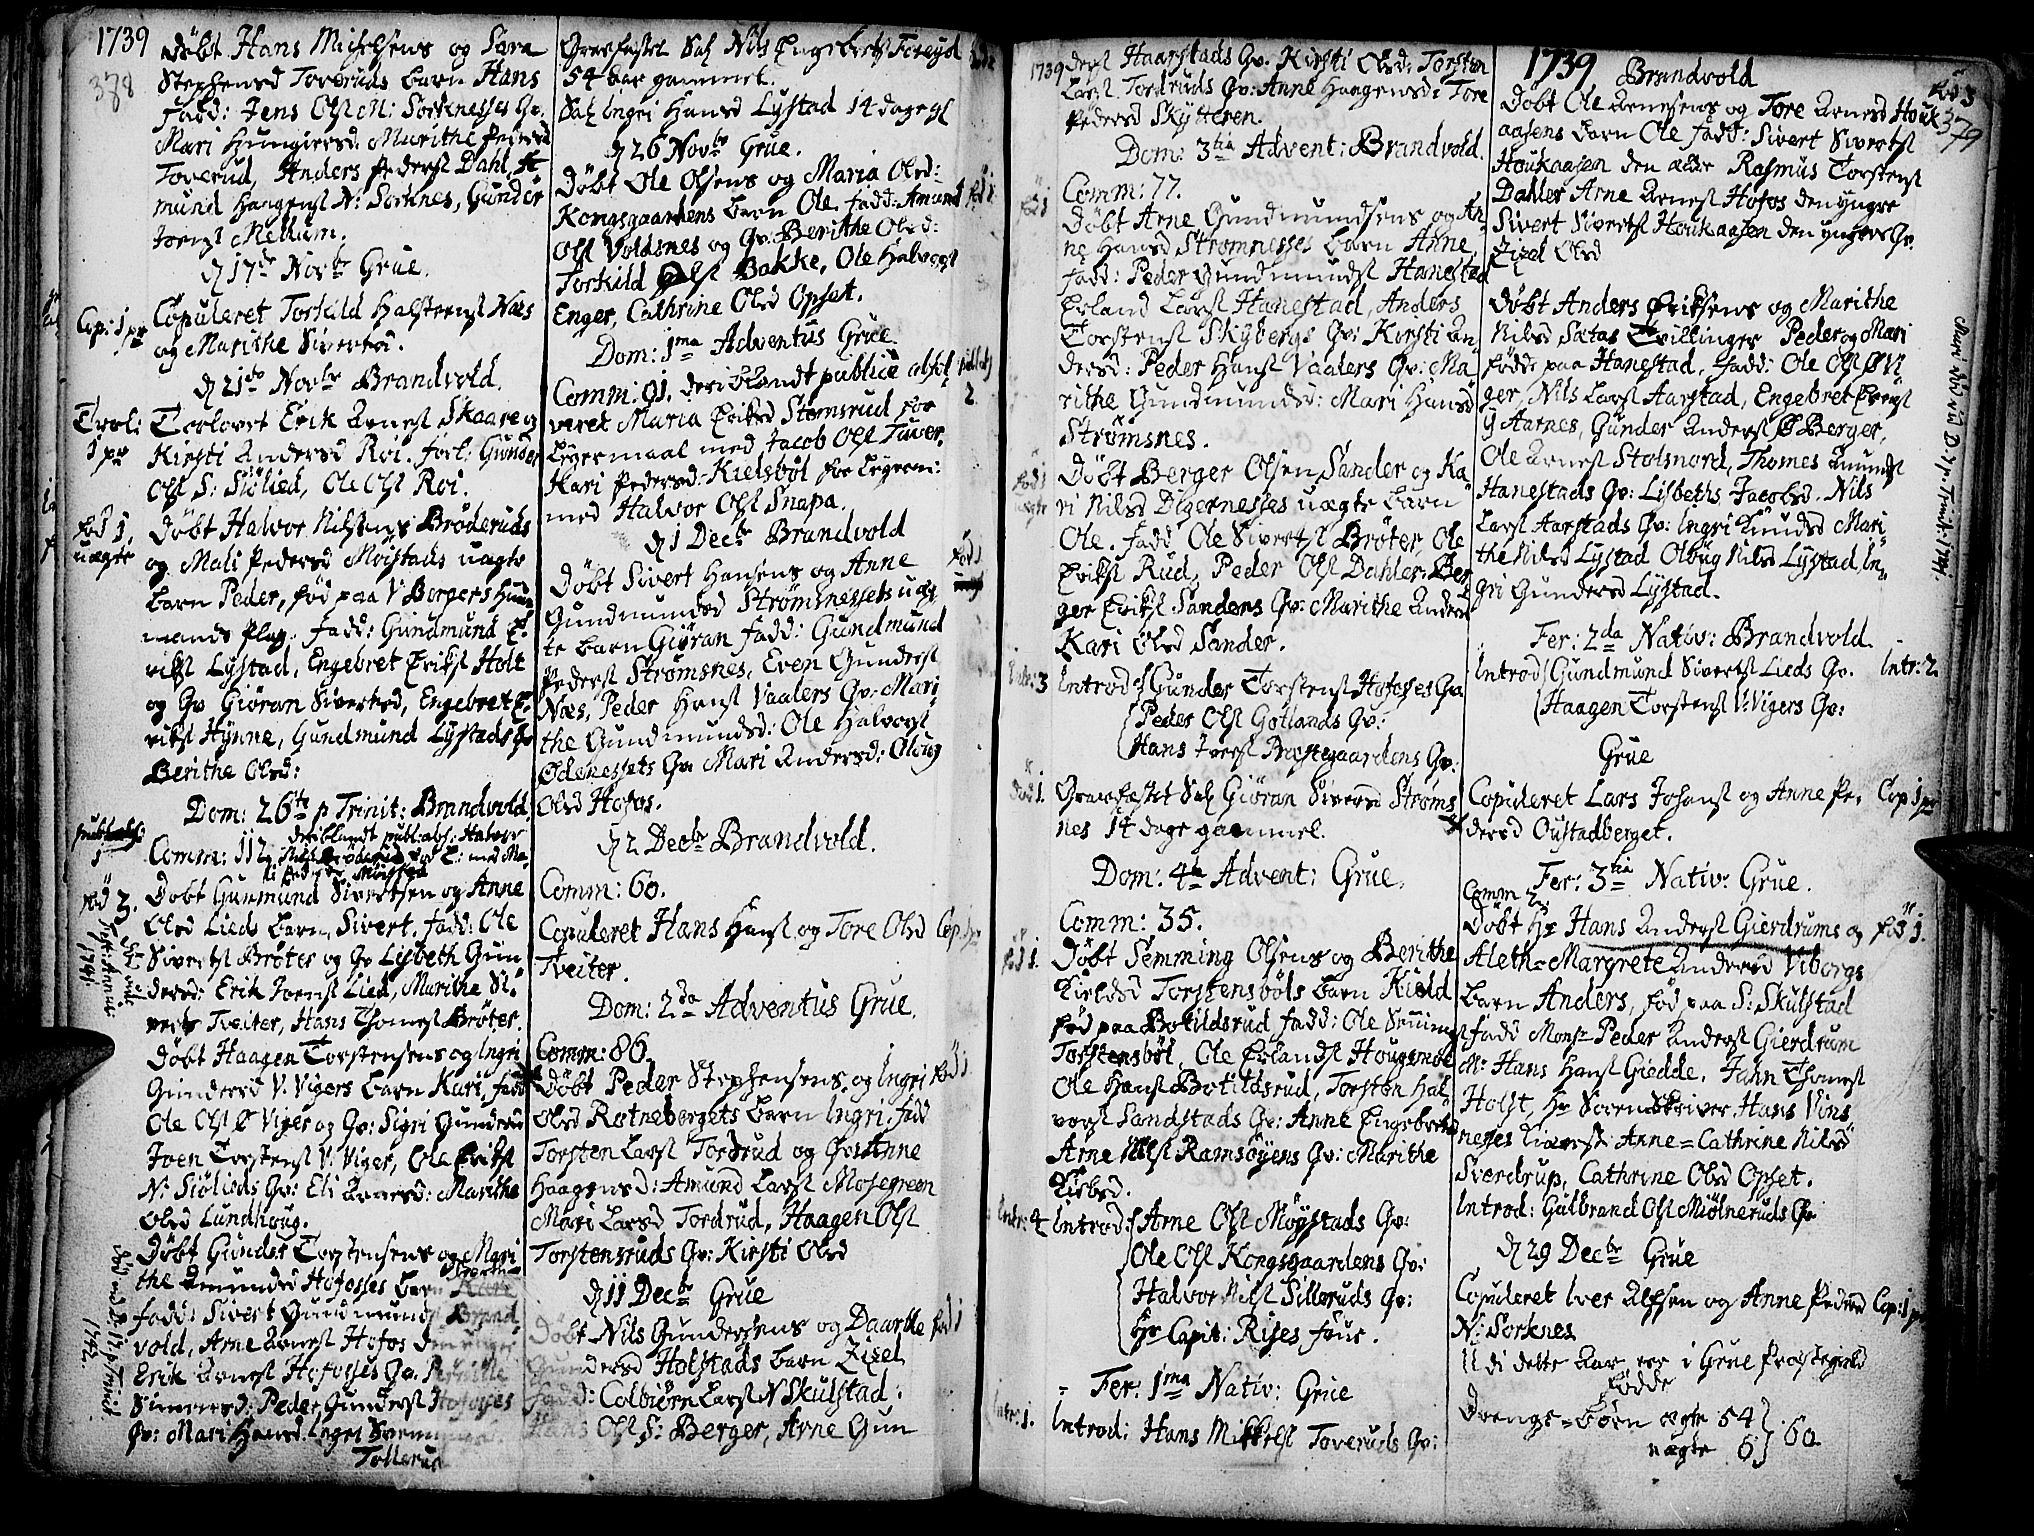 1739
378
Døbt Hans Michelsens og Sara
Stephensd Toveruds barn Hans
Fadd: Jens Olsl M: Sorknesses Qv.
Mari Hungiersd. Marithe Pedersd
Toverud, Anders Pedersl Dahl, A-
mund Haagensl N: Sorknes, Gunder
Joensl Mellum.
d 17de Novbr Grue.
Cop: 1 pr
Copuleret Torkild Halstensl Næs
og Marithe Sivertsd.
d 21de Novbr Brandvold.
Trol: 1 pr
Trolovet Erik Arnesl Skaare og
Kirsti Andersd Roi. forl: Gunder
Olsl S: Siølied, Ole Olsl Roi.
fød 1. uægte
Døbt Halvor Nilsens Brøderuds
og Mali Pedersd Møistads uægte
barn Peder, fød paa V Bergers Huus
mands Plag. Fadd: Gundmund E-
riksl Lystad, Engebret Eriksl Holt
og Qv Giøran Sivertsd, Engebret E-
riksl Hynne, Gundmund Lystads Qv
Berithe Olsd:
Dom: 26te p Trinit: Brandvold
publ: abs: 1
Comm: 112, deriblandt publ: abs: Halvor
Nils Brøderud for L: med Ma-
li Pedersd Møistad
fød 3.
Døbt Gunmund Sivertsen og Anne
Olsd Lieds barn, Sivert. fadd: Ole
Sivertsl Brøter og Qv Lisbeth Gun-
dersd: Erik Joensl Lied, Marithe Si-
verts Tveiter, Hans Thomesl Brøter.
Døbt Haagen Torstensens og Ingri
Gundersd V. Vigers barn Kari, fadd
Ole Olsl Ø Viger og Qv: Sigri Gundersd
Joen Torstensl V: Viger, Ole Eriksl
N: Siølieds Qv: Eli Arnesd: Marithe
Olsd Lundhoug.
Døbt Gunder Torstensens og Mari-
the Amundsd Hofosses barn
fadd: Sivert Gundmundsl Brand-
vold, Arne Arnesl Hofos den
Erik Arnesl Hofosses Qv.
Simensd: Peder Gundersl Hofosses
Qv: Mari Hansd. Ingri Svenn
Tollerud
Gravfæstet Sal Nils Engebretsl Foreyd
54 Aar gammel.
Sal Ingri Hansd Lystad 14 dage gl
d 26 Novbr Grue.
Døbt Ole Olsens og Maria Olsd:
Kongsgaardens barn Ole, fadd: Amund
Olsl Voldsnes og Qv: Berithe Olsd:
Torkild Olsl Bakke, Ole Halvorsl
Enger, Cathrine Olsd Opset.
Dom: 1ma Adventus Grue.
Comm: 91. deriblandt publice absol-
veret Maria Eriksd Stomsrud for
Leyermaal med Jacob Olsl Tuver.
Kari Pedersd: Kielsbøl for Leyerm:
med Halvor Olsl Snapa.
d 1 Decbr Brandvold
Døbt Sivert Hansens og Anne
Gundmundsd Strømnessets uæg-
te barn Giøran fadd: Gundmund
Pedersl Strømsnes, Even Gundersl
Næs, Peder Hansl Vaalers Qv: Mari
the Gundmundsd: Ole Halvorsl
Ødenessets Qv Mari Andersd: Oloug
Olsd Hofos.
d 2 Decbr Brandvold.
Comm: 60.
Copuleret Hans Hansl og Tore Olsd Cop. 1 pr
Tveiter.
Dom: 2da Adventus Grue.
Comm: 86.
Døbt Peder Stephensens og Ingri fød 1
Olsd Rotnebergets barn Ingri. fadd
Torsten Larsl Tordrud og Qv: Anne
Haagensd: Amund Larsl Mosegreen
Mari Larsd Tordrud, Haagen Olsl
Torstensruds Qv: Kirsti Olsd
d 11 Decbr Grue
Døbt Nils Gundersens og Daarthe fød 1
Gundersd Holstads barn Zizel
fadd: Colbiørn Larsl N Skulstad.
Hans Olsl S: Berger, Arne Gun
1739
dersl Haarstads Qv. Kirsti Olsd: Torsten
Larsl Tordruds Qv: Anne Haagensd: Tore
Pedersd Skytteren.
Dom: 3tia Advent: Brandvold.
Comm: 77.
fød 1
Døbt Arne Gundmundsens og An-
ne Hansd Strømnesses barn Anne
fadd: Peder Gundmundsl Hanestad
Erland Larsl Hanestad, Anders
Torstensl Skybergs Qv: Kersti An-
dersd: Peder Hansl Vaalers Qv: Ma-
rithe Gundmundsd: Mari Hansd
Strømsnes.
fød 1 uægte
Døbt Berger Olsen Sander og Ka-
ri Nilsd Digernesses uægte barn
Ole. fadd Ole Sivertsl Brøter, Ole
Eriksl Rud, Peder Olsl Dahler, Ber-
ger Eriksl Sanders Qv: Marithe Andersd
Kari Olsd Sander.
Intr: 3
Introd: Gunder Torstensl Hofosses Qv
Peder Olsl Gotlands Qv:
Hans Iversl Præstegaardens Qv:
død 1.
Gravfæstet Sal Giøran Sivertsd Strøms-
nes 14 dage gammel.
Dom: 4ta Advent: Grue.
Comm: 35.
fød 1.
Døbt Semming Olsens og Berithe
Kieldsd Torstensbøls barn Kield
fød paa Botildsrud fadd: Ole Semings
Torstensbøl, Ole Erlandsl Hougsmoe
Ole Hansl Botildsrud, Torsten Hal-
vorsl Sandstads Qv: Anne Engebretsd
Arne Nilsl Ramsøyens Qv: Marithe
Intr: 4
Introd: Arne Olsl Moystads Qv:
Ole Olsl Kongsgaardens Qv:
Halvor Nilsl Silleruds Qv:
Hr Capit: Rises frue.
Fer: 1ma Nativ: Grue
Intr: 1.
Introd: Hans Mikkelsl Toveruds Qv:
1739
Brandvold
fød 3
379
Døbt Ole Arnesens og Tore Arnesd Houk-
aasens barn Ole fadd: Sivert Sivertsl
Houkaasen den ældr Rasmus Torstensl
Dahler Arne Arnesl Hofos den yngre
Sivert Sivertsl Houkaasen den yngers Qv.
Zizel Olsd
Døbt Anders Eriksens og Marithe
Nilsd Satas Tvillinger Peder og Mari
fødde paa Hanestad, fadd: Ole Olsl Ø Vi-
ger, Nils Larsl Aarstad, Engebret Eversl
Y Aarnes, Gunder Andersl Ø Berger,
Ole Arnesl Stolsnord, Thomes Amundsl
Hanestads Qv: Lisbeths Jacobsd. Nils
Larsl Aarstads Qv: Ingri Knudsd Mari-
the Nilsd Lystad Oloug Nilsd Lystad, In-
gri Gundersd Lystad.
Fer: 2da Nativ: Brandvold.
Introd Gundmund Sivertsl Lieds Qv. Intr: 2
Haagen Torstensl V: Vigers Qv:
Grue
Copuleret Lars Johansl og Anne Pe- Cop 1 pr
dersd Oustadberget.
Fer: 3tia Nativ: Grue.
Comm 2.
Døbt Hr Hans Andersl Gierdrums og fød 1.
Aleth=Margrete Andersd Viborgs
barn Anders, fød paa S: Skulstad
fadd Monsr Peder Andersl Gierdrum
Mr Hans Hansl Giedde, Jahn Thomesl
Holst, Hr Sorenskriver Hans Vins-
nesses Kiæreste Anne=Cathrine Nilsd
Sverdrup, Cathrine Olsd Opset.
Introd: Gulbrand Olsl Miølneruds Qv
d 29 Decbr Grue
Copuleret Iver Alfsen og Anne Pedersd Cop: 1 pr
N: Sorknes
Udi dette Aar er i Grue Præstegield
fødde
Drenge=børn ægte 54
uægte 6 } 60